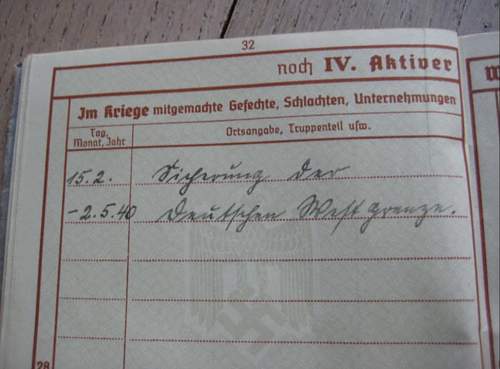 32
noch IV. Aktiver
Im Kriege mitgemachte Gefechte, Schlachten, Unternehmungen
Tag, Monat, Jahr
Ortsangabe, Truppenteil usw.
15.2. Sicherung der
-2.5.40 Deutschen West grenze.
28